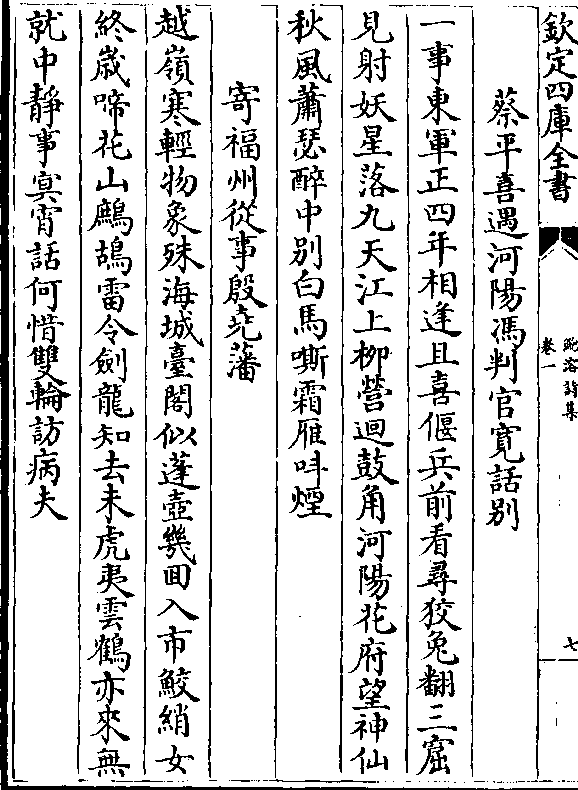 欽定四庫全書
毗陵詩集
卷一
七
蔡平喜遇河陽馮判官寛話別
一事東軍正四年相逢且喜偃兵前看尋狡兔翻三窟
見射妖星落九天江上柳營迴鼓角河陽花府望神仙
秋風蕭瑟醉中別白馬嘶霜雁呌煙
寄福州從事殷堯藩
越嶺寒輕物象殊海城臺閣似蓬壺幾回入市鮫綃女
終歲啼花山鷓鴣雷令劍龍知去未虎夷雲鶴亦來無
就中靜事冥宵話何惜雙輪訪病夫